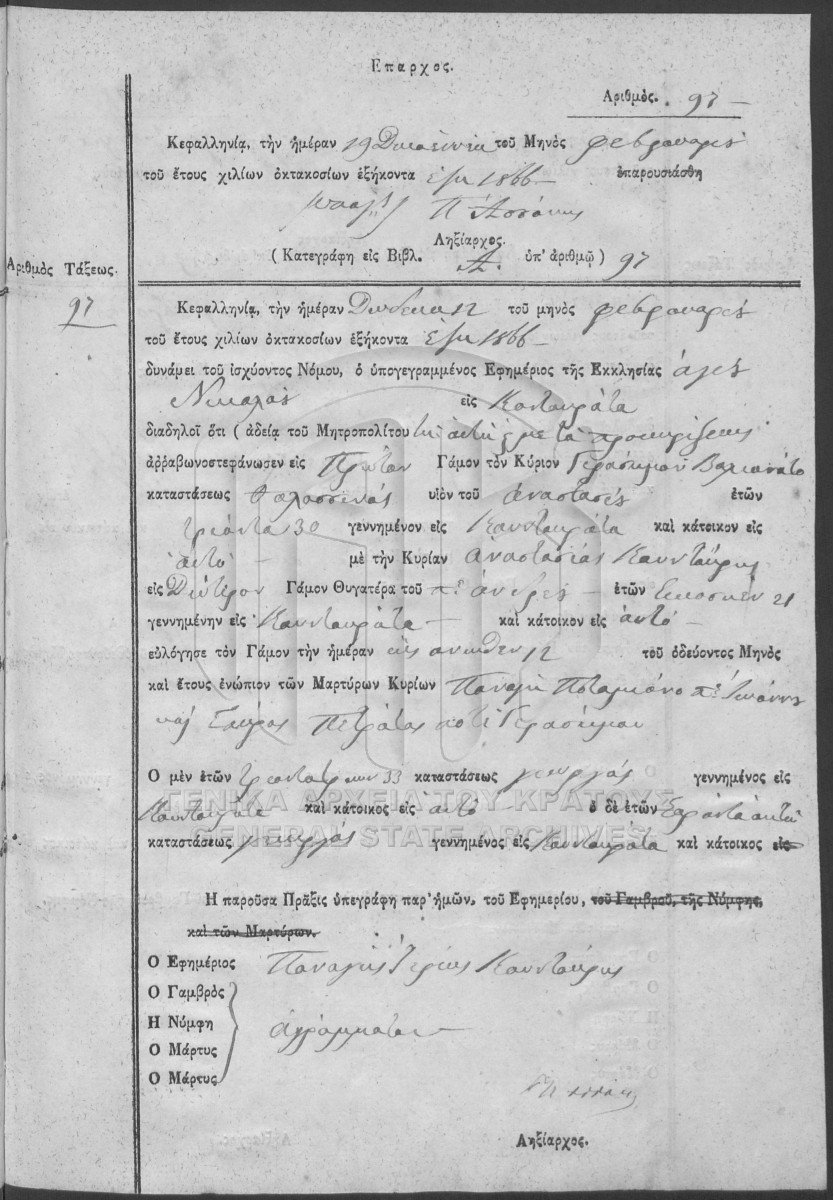 Επαρχος.
Αριθμὸς. 97 –
Κεφαλληνίᾳ, τὴν ἡμέραν 19 τοῦ Μηνὸς φεβρουαρίου
τοῦ ἔτους χιλίων ὀκτακοσίων ἑξήκοντα ἕξη 1866 – ἐπαρουσιάσθη
Ληξίαρχος.
( Κατεγράφη εἰς Βιβλ. Α. ὑπ' ἀριθμῷ ) 97
Αριθμὸς Τάξεως.
97
Κεφαλληνίᾳ, τὴν ἡμέραν Δώδεκα 12 τοῦ μηνὸς φεβρουαρίου
τοῦ ἔτους χιλίων ὀκτακοσίων ἑξήκοντα ἕξη 1866 –
δυνάμει τοῦ ἰσχύοντος Νόμου, ὁ ὑπογεγραμμένος Εφημέριος τῆς Εκκλησίας ἁγίου
Νικολάου εἰς Κουντουράτα
διαδηλοῖ ὅτι ( ἀδείᾳ τοῦ Μητροπολίτου
ἀῤῥαβωνοστεφάνωσεν εἰς Πρῶτον Γάμον τὸν Κύριον Γεράσιμον Βαλιανάτο
καταστάσεως θαλασσινός υἱὸν τοῦ ἀναστασίου ἐτῶν
τριάντα 30 γεννημένον εἰς Κουντουράτα καὶ κάτοικον εἰς
αὐτό – μὲ τὴν Κυρίαν ἀναστασίαν Κουντούρη
εἰς Δεύτερον Γάμον Θυγατέρα τοῦ π. ἀνδρέου – ἐτῶν 21
γεννημένην εἰς Κουντουράτα – καὶ κάτοικον εἰς αὐτό –
εὐλόγησε τὸν Γάμον τὴν ἡμέραν εἰς ἄνωθεν 12 τοῦ ὁδεύοντος Μηνὸς
καὶ ἔτους ἐνώπιον τῶν Μαρτύρων Κυρίων Παναγῆ Ποταμιάνο π. Ἰωάννη
καὶ Σπύρος Πετράτος ποτὲ Γεράσιμου
Ο μὲν ἐτῶν 33 καταστάσεως γεωργός γεννημένος εἰς
Κουντουράτα καὶ κάτοικος εἰς αὐτό ὁ δὲ ἐτῶν Σαράντα
καταστάσεως γεωργός γεννημένος εἰς Κουντουράτα καὶ κάτοικος εἰς
ΓΕΝΙΚΑ ΑΡΧΕΙΑ ΤΟΥ ΚΡΑΤΟΥΣ
GENERAL STATE ARCHIVES
Η παροῦσα Πρᾶξις ὑπεγράφη παρ' ἡμῶν, τοῦ Εφημερίου, τοῦ Γαμβροῦ, τῆς Νύμφης,
καὶ τῶν Μαρτύρων.
Ο Εφημέριος Παναγῆς Ἱερεύς Κουντούρης
Ο Γαμβρὸς
Η Νύμφη ἀγράμματοι –
Ο Μάρτυς
Ο Μάρτυς
Ληξίαρχος.